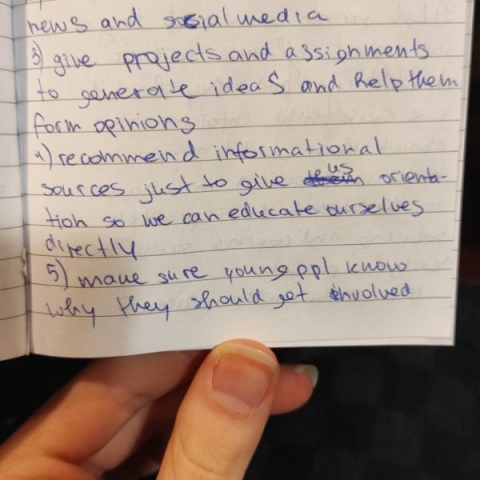 news and social media
3) give projects and assignments
to generate ideas and help them
form opinions
4) recommend informational
sources just to give us orienta-
tion so we can educate ourselves
directly
5) make sure young ppl know
why they should get involved